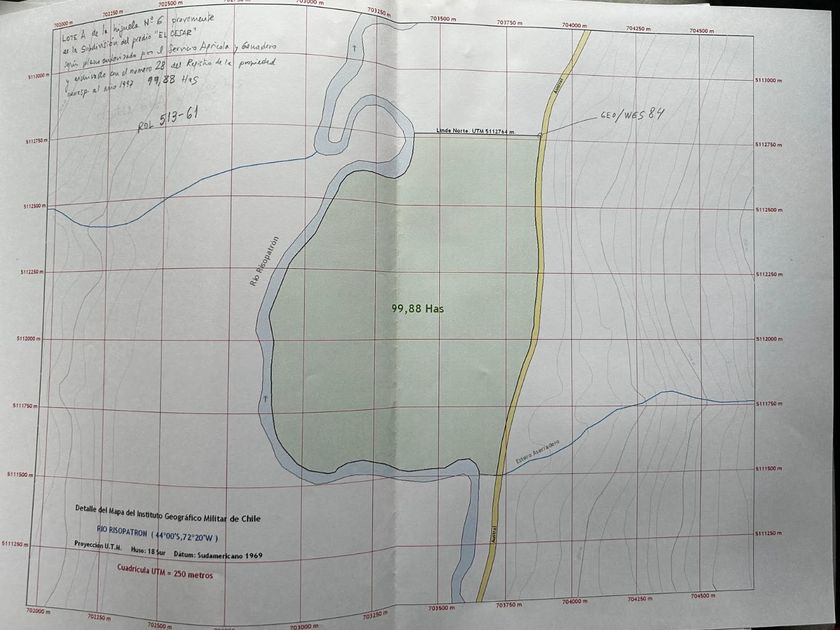 702000 m 702250 m 702500 m 703250 m 703500 m 703750 m 704000 m 704250 m 704500 m
LOTE A de la hijuela Nº 6 proveniente
de la Subdivisión del predio "EL CESAR"
según plano autorizado por el Servicio Agrícola y Ganadero
y archivado con el número 28 del Registro de la propiedad
corresp. al año 1997 99,88 Has
ROL 513-61
GEO/WES 84
Linde Norte. UTM 5112764 m.
Austral
Río Risopatrón
99,88 Has
Estero Aserradero
Austral
5113000 m
5112750 m
5112500 m
5112250 m
5112000 m
5111750 m
5111500 m
5111250 m
5113000 m
5112750 m
5112500 m
5112250 m
5112000 m
5111750 m
5111500 m
5111250 m
Detalle del Mapa del Instituto Geográfico Militar de Chile
RIO RISOPATRON ( 44°00'S,72°20'W )
Proyección U.T.M. Huso: 18 Sur Datum: Sudamericano 1969
Cuadrícula UTM = 250 metros
702000 m 702250 m 702500 m 703000 m 703250 m 703500 m 703750 m 704000 m 704250 m 704500 m